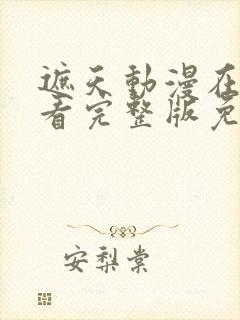 遮天動漫在
看完整版免
安梨棠